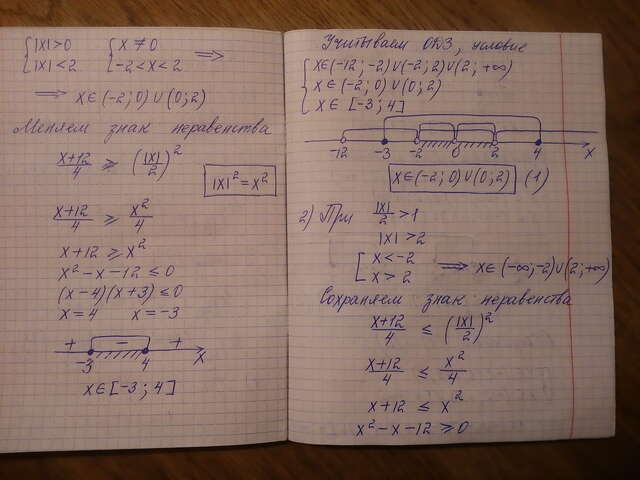 { |x|>0 { x≠0 ⟹
{ |x|<2 { -2<x<2
⟹ x∈(-2;0)∪(0;2)
Меняем знак неравенства
(x+12)/4 ≥ (|x|/2)²
|x|²=x²
(x+12)/4 ≥ x²/4
x+12≥x²
x²-x-12≤0
(x-4)(x+3)≤0
x=4 x=-3
+ - +
-3 4 x
x∈[-3;4]
Учитываем ОДЗ, условие
{ x∈(-12;-2)∪(-2;2)∪(2;+∞)
{ x∈(-2;0)∪(0;2)
{ x∈[-3;4]
-12 -3 -2 0 2 4 x
x∈(-2;0)∪(0;2) (1)
2) При |x|/2 >1
|x|>2
[ x<-2
[ x>2 ⟹ x∈(-∞;-2)∪(2;+∞)
Сохраняем знак неравенства
(x+12)/4 ≤ (|x|/2)²
(x+12)/4 ≤ x²/4
x+12 ≤ x²
x²-x-12≥0